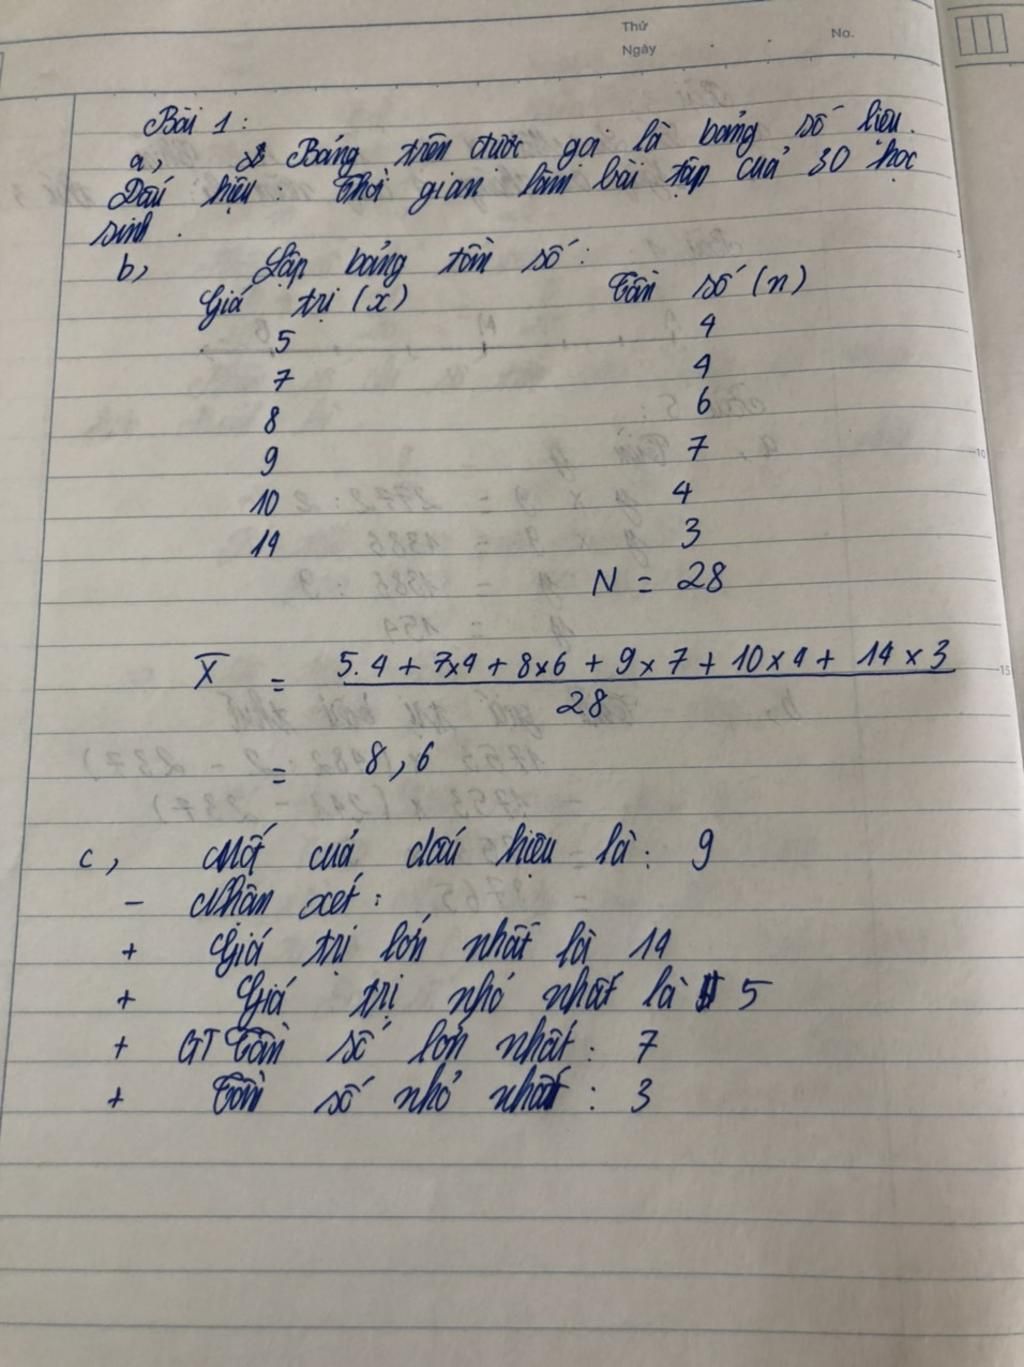 Thứ
Ngày
No.
Bài 1:
a, Bảng trên được gọi là bảng số liệu.
Dấu hiệu: Thời gian làm bài tập của 30 học
sinh.
b, Lập bảng tần số:
Giá trị (x) Tần số (n)
5 4
7 4
8 6
9 7
10 4
14 3
N = 28
X̅ = 5.4 + 7x4 + 8x6 + 9x7 + 10x4 + 14x3
28
= 8,6
c, Mốt của dấu hiệu là: 9
- Nhận xét:
+ Giá trị lớn nhất là 14
+ Giá trị nhỏ nhất là 5
+ GT Tần số lớn nhất: 7
+ Tần số nhỏ nhất: 3